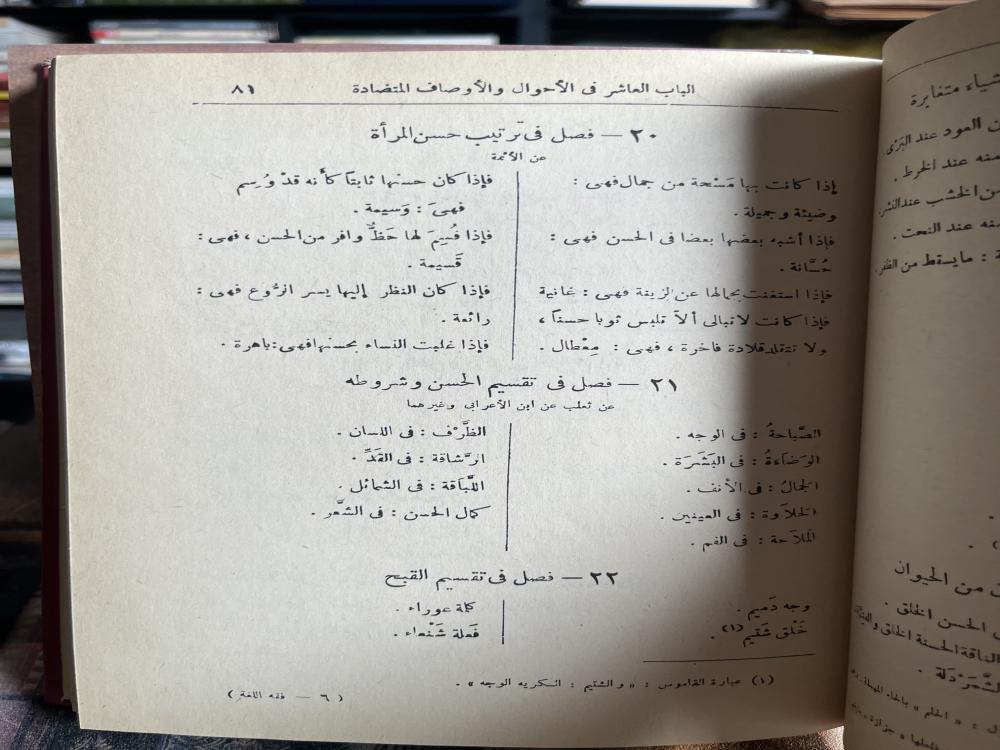 الباب العاشر فى الأحوال والأوصاف المتضادة ٨١
٢٠ — فصل فى ترتيب حسن المرأة
عن الأئمة
إذا كانت بها مَسْحة من جمال فهى :
وضيئة وجميلة .
فإذا أشبه بعضها بعضا فى الحسن فهى :
حُسَّانة .
فإذا استغنت بجمالها عن الزينة فهى : غانية
فإذا كانت لا تبالى ألاّ تلبس ثوبا حسناً ،
ولا تتقلد قلادة فاخرة ، فهى : مِعْطال .
فإذا كان حسنها ثابتاً كأنه قدْ وُسِم
فهىَ : وَسيمة .
فإذا قُسِمَ لها حَظٌّ وافر من الحسن ، فهى :
قَسيمة .
فإذا كان النظر إليها يسر الرُّوع فهى :
رائعة .
فإذا غلبت النساء بحسنها فهى : باهرة .
٢١ — فصل فى تقسيم الحسن وشروطه
عن ثعلب عن ابن الأعرابى وغيرهما
الصَّباحةُ : فى الوجه .
الوَضَاءةُ : فى البَشَرَة .
الجمالُ : فى الأنف .
الحلاَوة : فى العينين .
الملاَحة : فى الفم .
الظَّرْف : فى اللسان .
الرَّشاقة : فى القَدِّ .
اللَّبَاقة : فى الشمائل .
كمال الحسن : فى الشَّعر .
٢٢ — فصل فى تقسيم القبح
وجه دَميم .
خَلْق شَتيم (١) .
كلمة عوراء .
فَعلة شَنْعاء .
(١) عبارة القاموس : « والشتيم : الكريه الوجه » .
( ٦ — فقه اللغة )
شياء متغايرة
العود عند البَرْى .
منه عند الخرط .
من الخشب عند النشر .
منه عند النحت .
: مايسقط من الظفر .
من الحيوان
الحسن الخلق .
الناقة الحسنة الخلق
الشَّمَرْدَلة .
: « الحلم » بالحاء المهملة